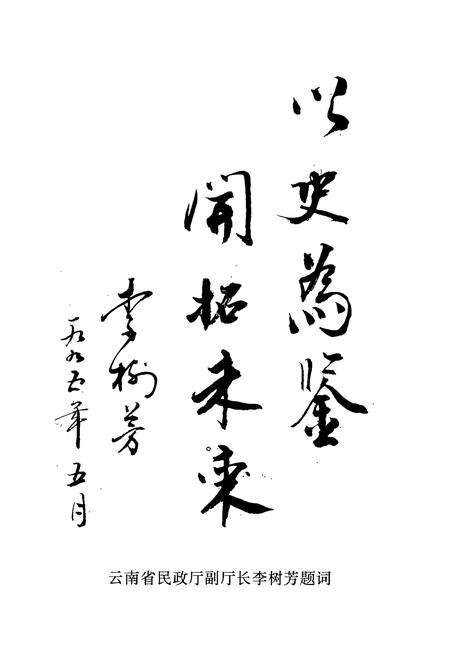 以史為鉴
開拓未来
李树芳
一九九五年五月
云南省民政厅副厅长李树芳题词